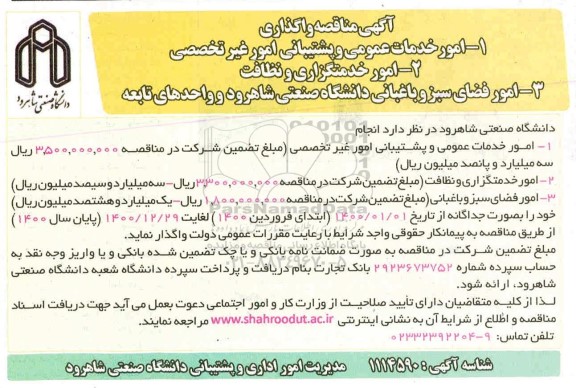 آگهی مناقصه واگذاری
۱- امور خدمات عمومی و پشتیبانی امور غیر تخصصی
۲- امور خدمتگزاری و نظافت
۳- امور فضای سبز و باغبانی دانشگاه صنعتی شاهرود و واحدهای تابعه
دانشگاه صنعتی شاهرود
دانشگاه صنعتی شاهرود در نظر دارد انجام
۱- امور خدمات عمومی و پشتیبانی امور غیر تخصصی (مبلغ تضمین شرکت در مناقصه ۳,۵۰۰,۰۰۰,۰۰۰ ریال
سه میلیارد و پانصد میلیون ریال)
۲- امور خدمتگزاری و نظافت (مبلغ تضمین شرکت در مناقصه ۳,۳۰۰,۰۰۰,۰۰۰ ریال- سه میلیارد و سیصد میلیون ریال)
۳- امور فضای سبز و باغبانی (مبلغ تضمین شرکت در مناقصه ۱,۸۰۰,۰۰۰,۰۰۰ ریال- یک میلیارد و هشتصد میلیون ریال)
خود را بصورت جداگانه از تاریخ ۱۴۰۰/۰۱/۰۱ (ابتدای فروردین ۱۴۰۰) لغایت ۱۴۰۰/۱۲/۲۹ (پایان سال ۱۴۰۰)
از طریق مناقصه به پیمانکار حقوقی واجد شرایط با رعایت مقررات عمومی دولت واگذار نماید.
مبلغ تضمین شرکت در مناقصه به صورت ضمانت نامه بانکی و یا چک تضمین شده بانکی و یا واریز وجه نقد به
حساب سپرده شماره ۲۹۲۳۶۷۳۷۵۲ بانک تجارت بنام دریافت و پرداخت سپرده دانشگاه شعبه دانشگاه صنعتی
شاهرود، ارائه شود.
لذا از کلیه متقاضیان دارای تأیید صلاحیت از وزارت کار و امور اجتماعی دعوت بعمل می آید جهت دریافت اسناد
مناقصه و اطلاع از شرایط آن به نشانی اینترنتی www.shahroodut.ac.ir مراجعه نمایند.
تلفن تماس: ۹-۰۲۳۳۲۳۹۲۲۰۴
شناسه آگهی: ۱۱۱۴۵۹۰ مدیریت امور اداری و پشتیبانی دانشگاه صنعتی شاهرود